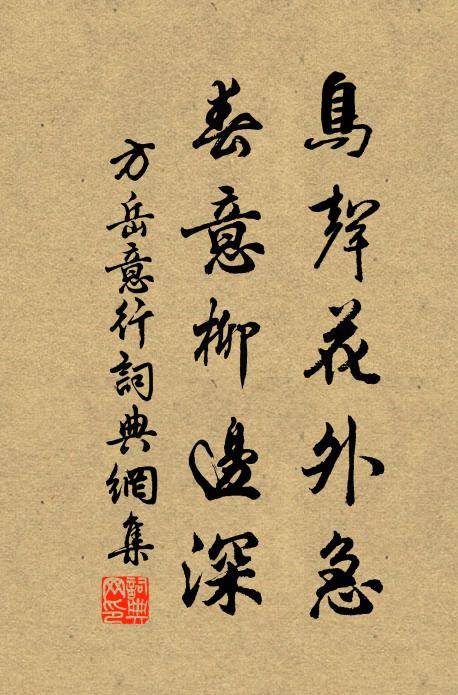 鳥聲花外急
春意柳邊深
方岳意行詞典網集
詞典网印